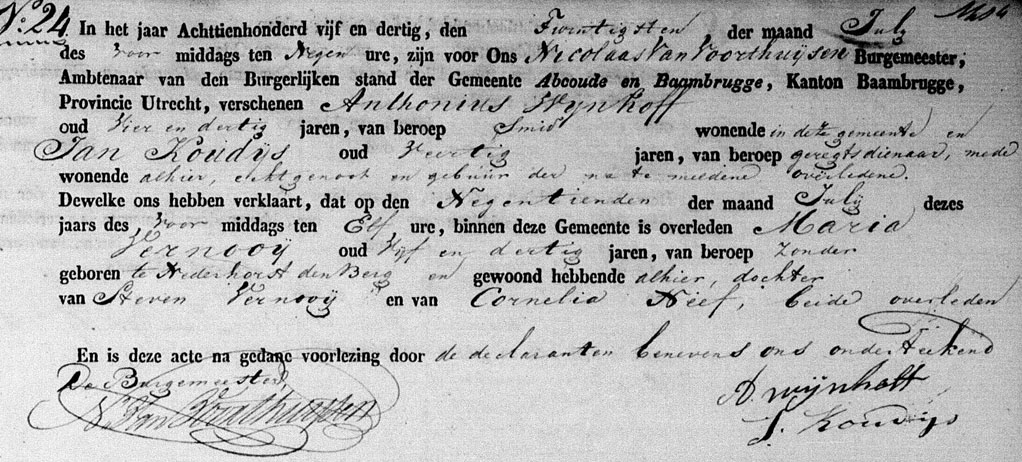 No. 24. In het jaar Achttienhonderd vijf en dertig, den Twintigsten, der maand July
des voor middags ten Negen ure, zijn voor Ons Nicolaas Van Voorthuijsen Burgemeester,
Ambtenaar van den Burgerlijken stand der Gemeente Abcoude en Baambrugge, Kanton Baambrugge,
Provincie Utrecht, verschenen Anthonius Wynhoff
oud Vier en dertig jaren, van beroep Smid wonende in deze gemeente en
Jan Koudijs oud Veertig jaren, van beroep geregtsdienaar, mede
wonende alhier, echtgenoot en gebuur der na te meldene overledene.
Dewelke ons hebben verklaart, dat op den Negentienden der maand July dezes
jaars des voor middags ten Elf, ure, binnen deze Gemeente is overleden Maria
Vernooÿ oud Vijf en dertig jaren, van beroep Zonder
geboren te Nederhorst den Berg en gewoond hebbende alhier, dochter
van Steven Vernooÿ en van Cornelia Neef, beide overleden
En is deze acte na gedane voorlezing door de declaranten benevens ons onderteekend
De Burgemeester,
N. Van Voorthuijsen
A wijnhoff
J. Koudijs